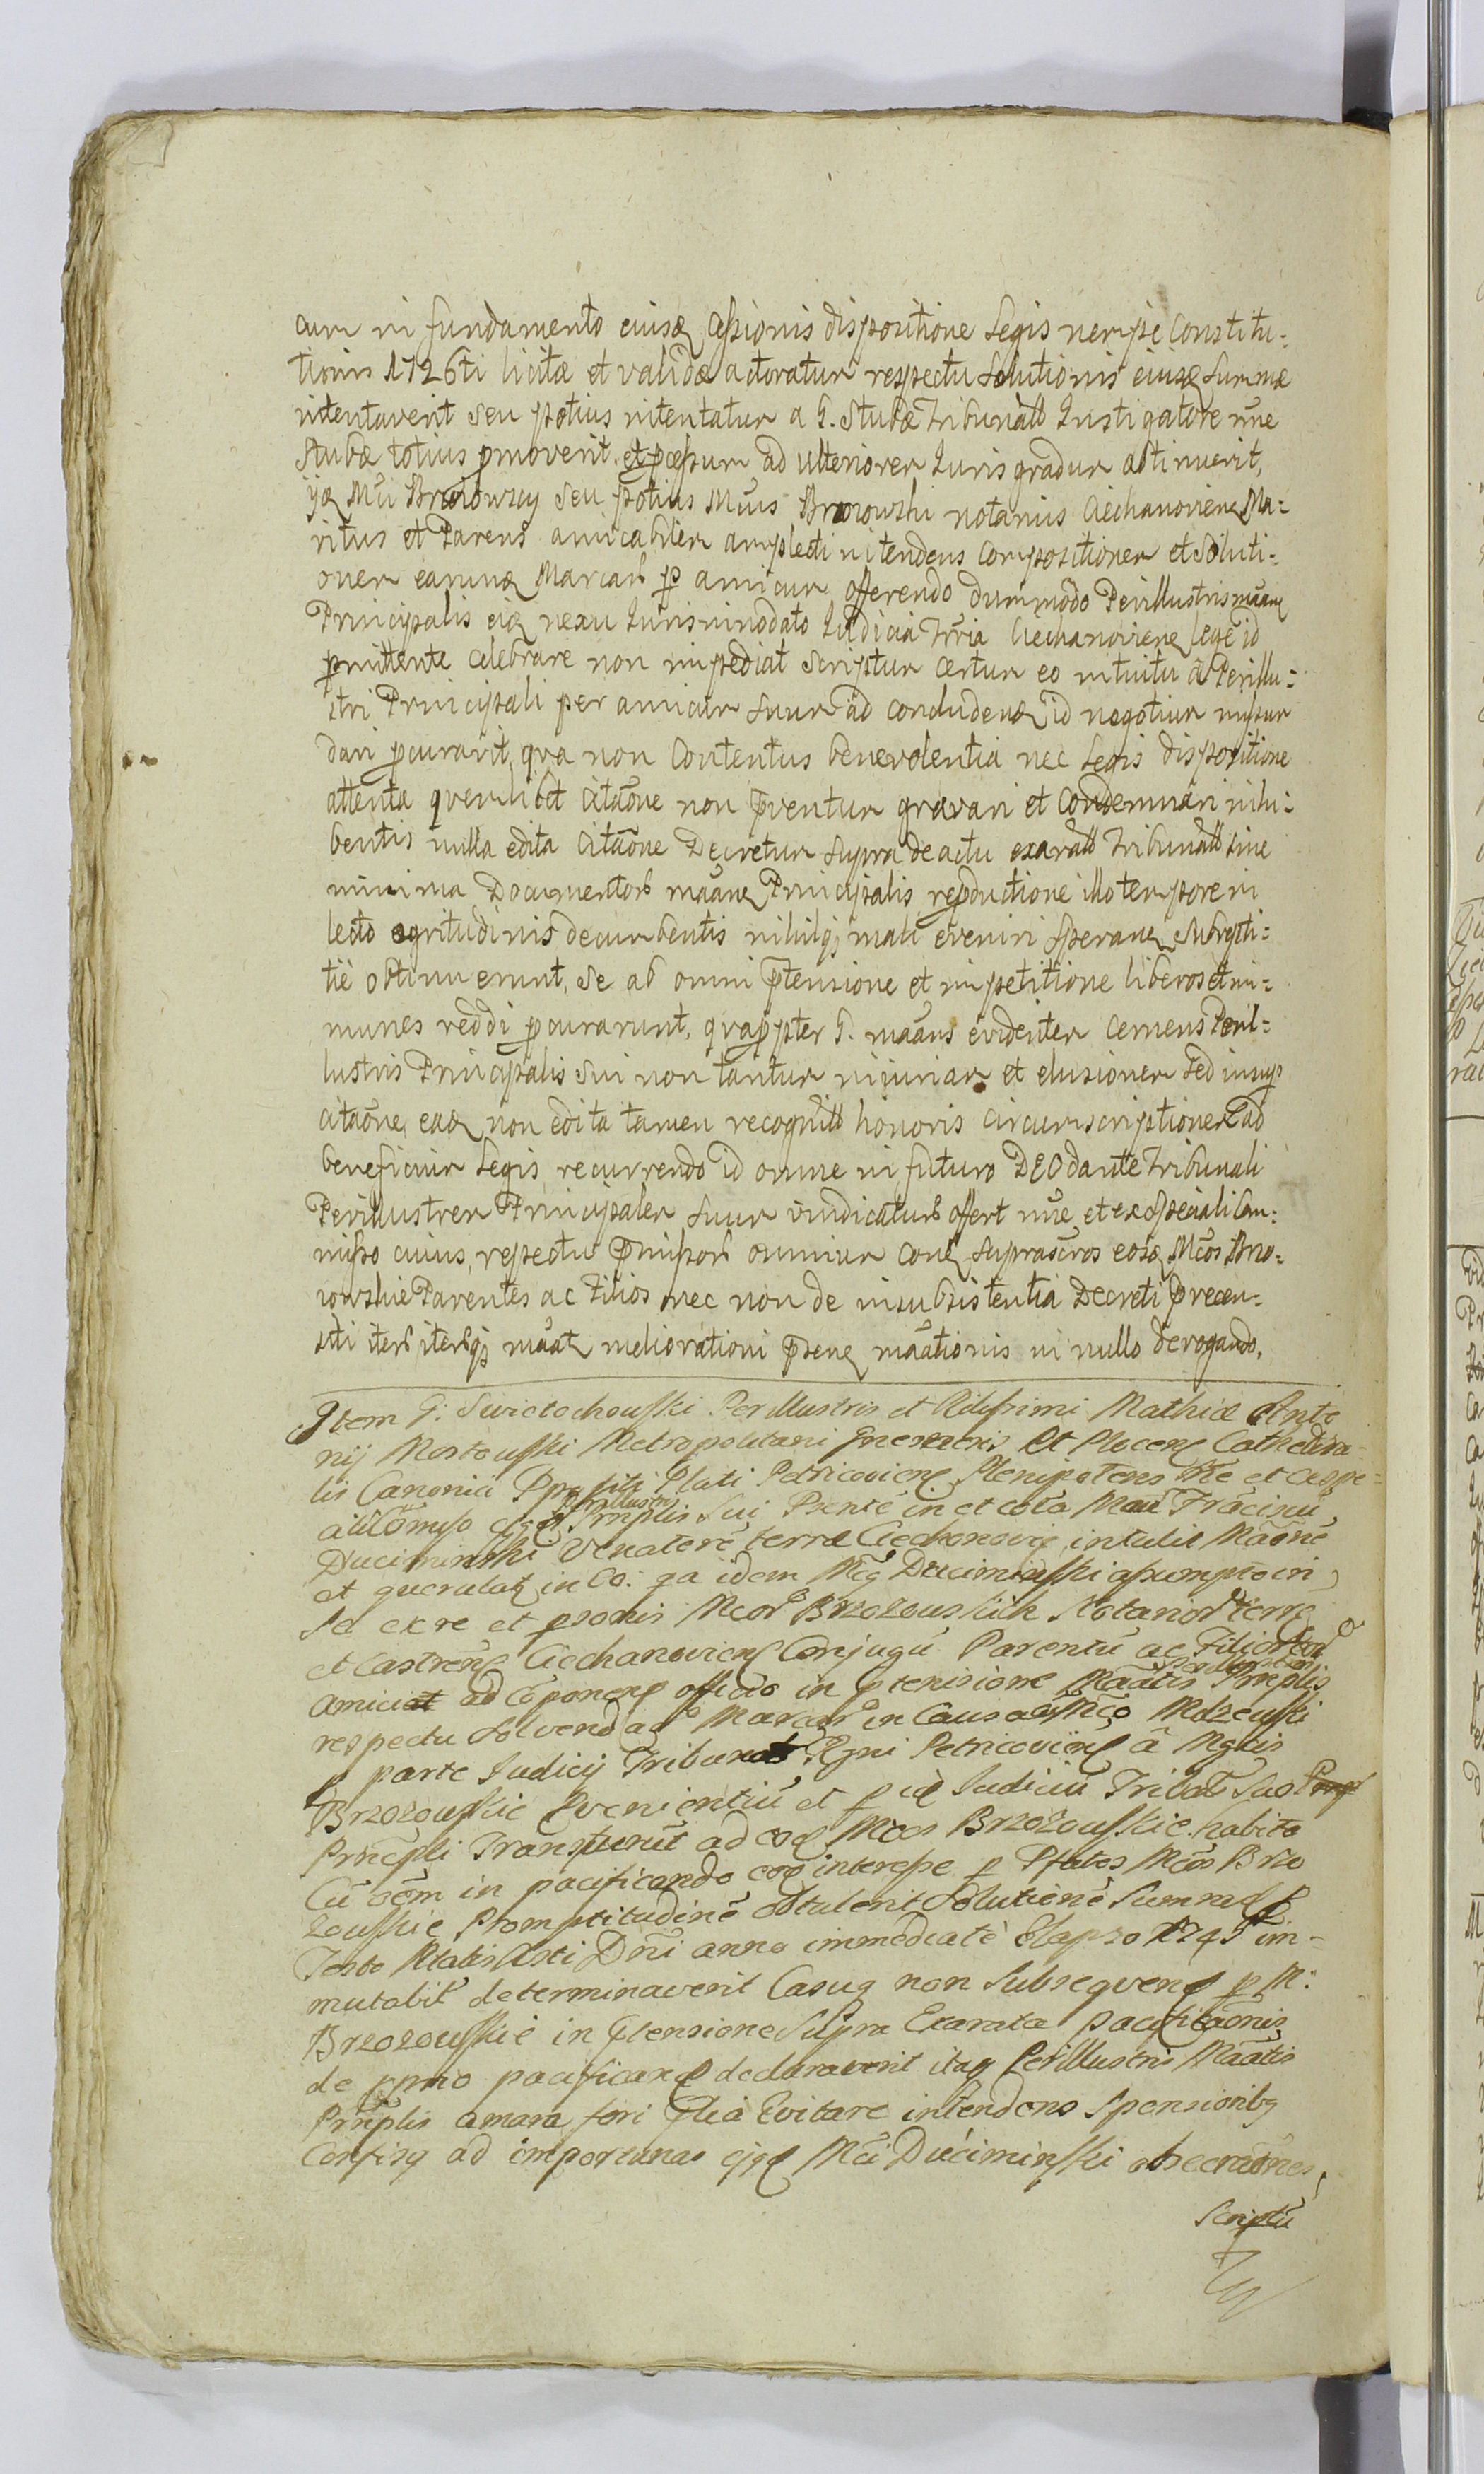 cum in fundamento eiusq̃ Cessionis dispositione Legis nempe Constitu:
tionis 1726ti licitæ et validæ actoratum respectu solutionis eiusq̃ summæ
intentaverit seu potius intentatum a G. Stubæ Tribunall Instigatore nñe
Stubæ totius pmoverit et pcessum ad ulteriorem Iuris gradum obtinuerit,
Mci Brzozowscy seu potius Mcus Brzozowski notarius Ciechanovien Ma:
ritus et Parens amicabilem amplecti intendens compositionem et Soluti:
onem earumq̃ Marcarˢ p amicum offerendo dummodo Perillustris maan
Principalis eiq̃ nexu Iuris innodato Iudicia Trria Ciechanoviene lege id
pmittente celebrare non impediat scriptum certum eo intuitu a Perillu:
stri Principali per amicum suum ad concludenq̃ id negotium missum
dari pcuravit, qva non contentus benevolentia nec Legis dispositione
attenta qvemlibet citaõne non pventum gravari et condemnari inhi:
bentis nulla edita Citaõne Decretum supra de actu exarall Tribunall sine
minima Documentorˢ maane Principalis repductione illo tempore in
lecto egritudinis decumbentis nihilq; mali eveniri sperane subrepti:
tiè obtinuerunt, se ab omni ptensione et impetitione liberos et im:
munes reddi pcurarunt, qvappter G. maans evidenter cernens Peril:
lustris Principalis sui non tantum iniuriam et elusionem sed insup
citaõne eaq̃ non edita tamen recognill honoris circumscriptionem ad
beneficium Legis recurrendo id omne in futuro DEO dante Tribunali
Perillustrem Principalem suum vindicaturˢ offert nñe et ex speciali Com:
misso cuius, respectu pmissorˢ omnium cone suprascros eosq̃ Mcos Brzo:
zowskie Parentes ac Filios nec non de insubsistentia Decreti precen:
siti iterˢ iterˢq; maat meliorationi psene maationis in nullo derogando.
Item G: Swietochowski Perillustris et Rdissimi Mathiæ Anto
nij Mostowski Metropolitani Gnesnens et Plocens Cathedra:
lis Canonici Ppositi Plati Petricovien Plenipotens Nñe et ex spe:
ali Cõmisso Perillustris Prnplis Sui Psente in et cõta Mcũ Frãciscũ
Duciminski Venatorẽ terræ Ciechanovien intulit Mãonẽ
et querulat in eo: qa idem Mcg Duciminski assumpto in
se ex re et psonis Mcorᵒ Brzozowskich Notariorᵒ terre
et Castren Ciechanovien Conjugũ Parentũ ac Filiorᵒ
amici ad cõponenq̃ officio in ptensione Maatis Prnplis
respectu solvend Marcarᵒ in Causa Mco Mdzewski
p parte Iudicij Tribunal Rgni Petricovien a Mgcis
Brzozowskie Evenientiũ et p iq̃ Iudiciũ Tribal suo
Prncpli Transfusũ ad eosq̃ Mcos Brzozowskie habito
Cũ ijsdẽm in pacificando eoq̃ interesse p Pfatos Mcos Brzo
zowskie Promptitudinẽ obtulerit Solutionẽ Summæ p
Festo Ntatis Xsti Dñi anno immediatè Elapso 1745 im-
mutabil determinaverit Casuq non Subsequens p M:
Brzozowskie in ptensione supra Exarata pacificãonis
de ppmo pacificareq̃ declaraverit itaq Perillustris Maatis
Prnplis amara fori plia Evitare intendens Spensionibq
Confisq ad importunas ejqq̃ Mci Duciminski obsecrãones
Scriptũ